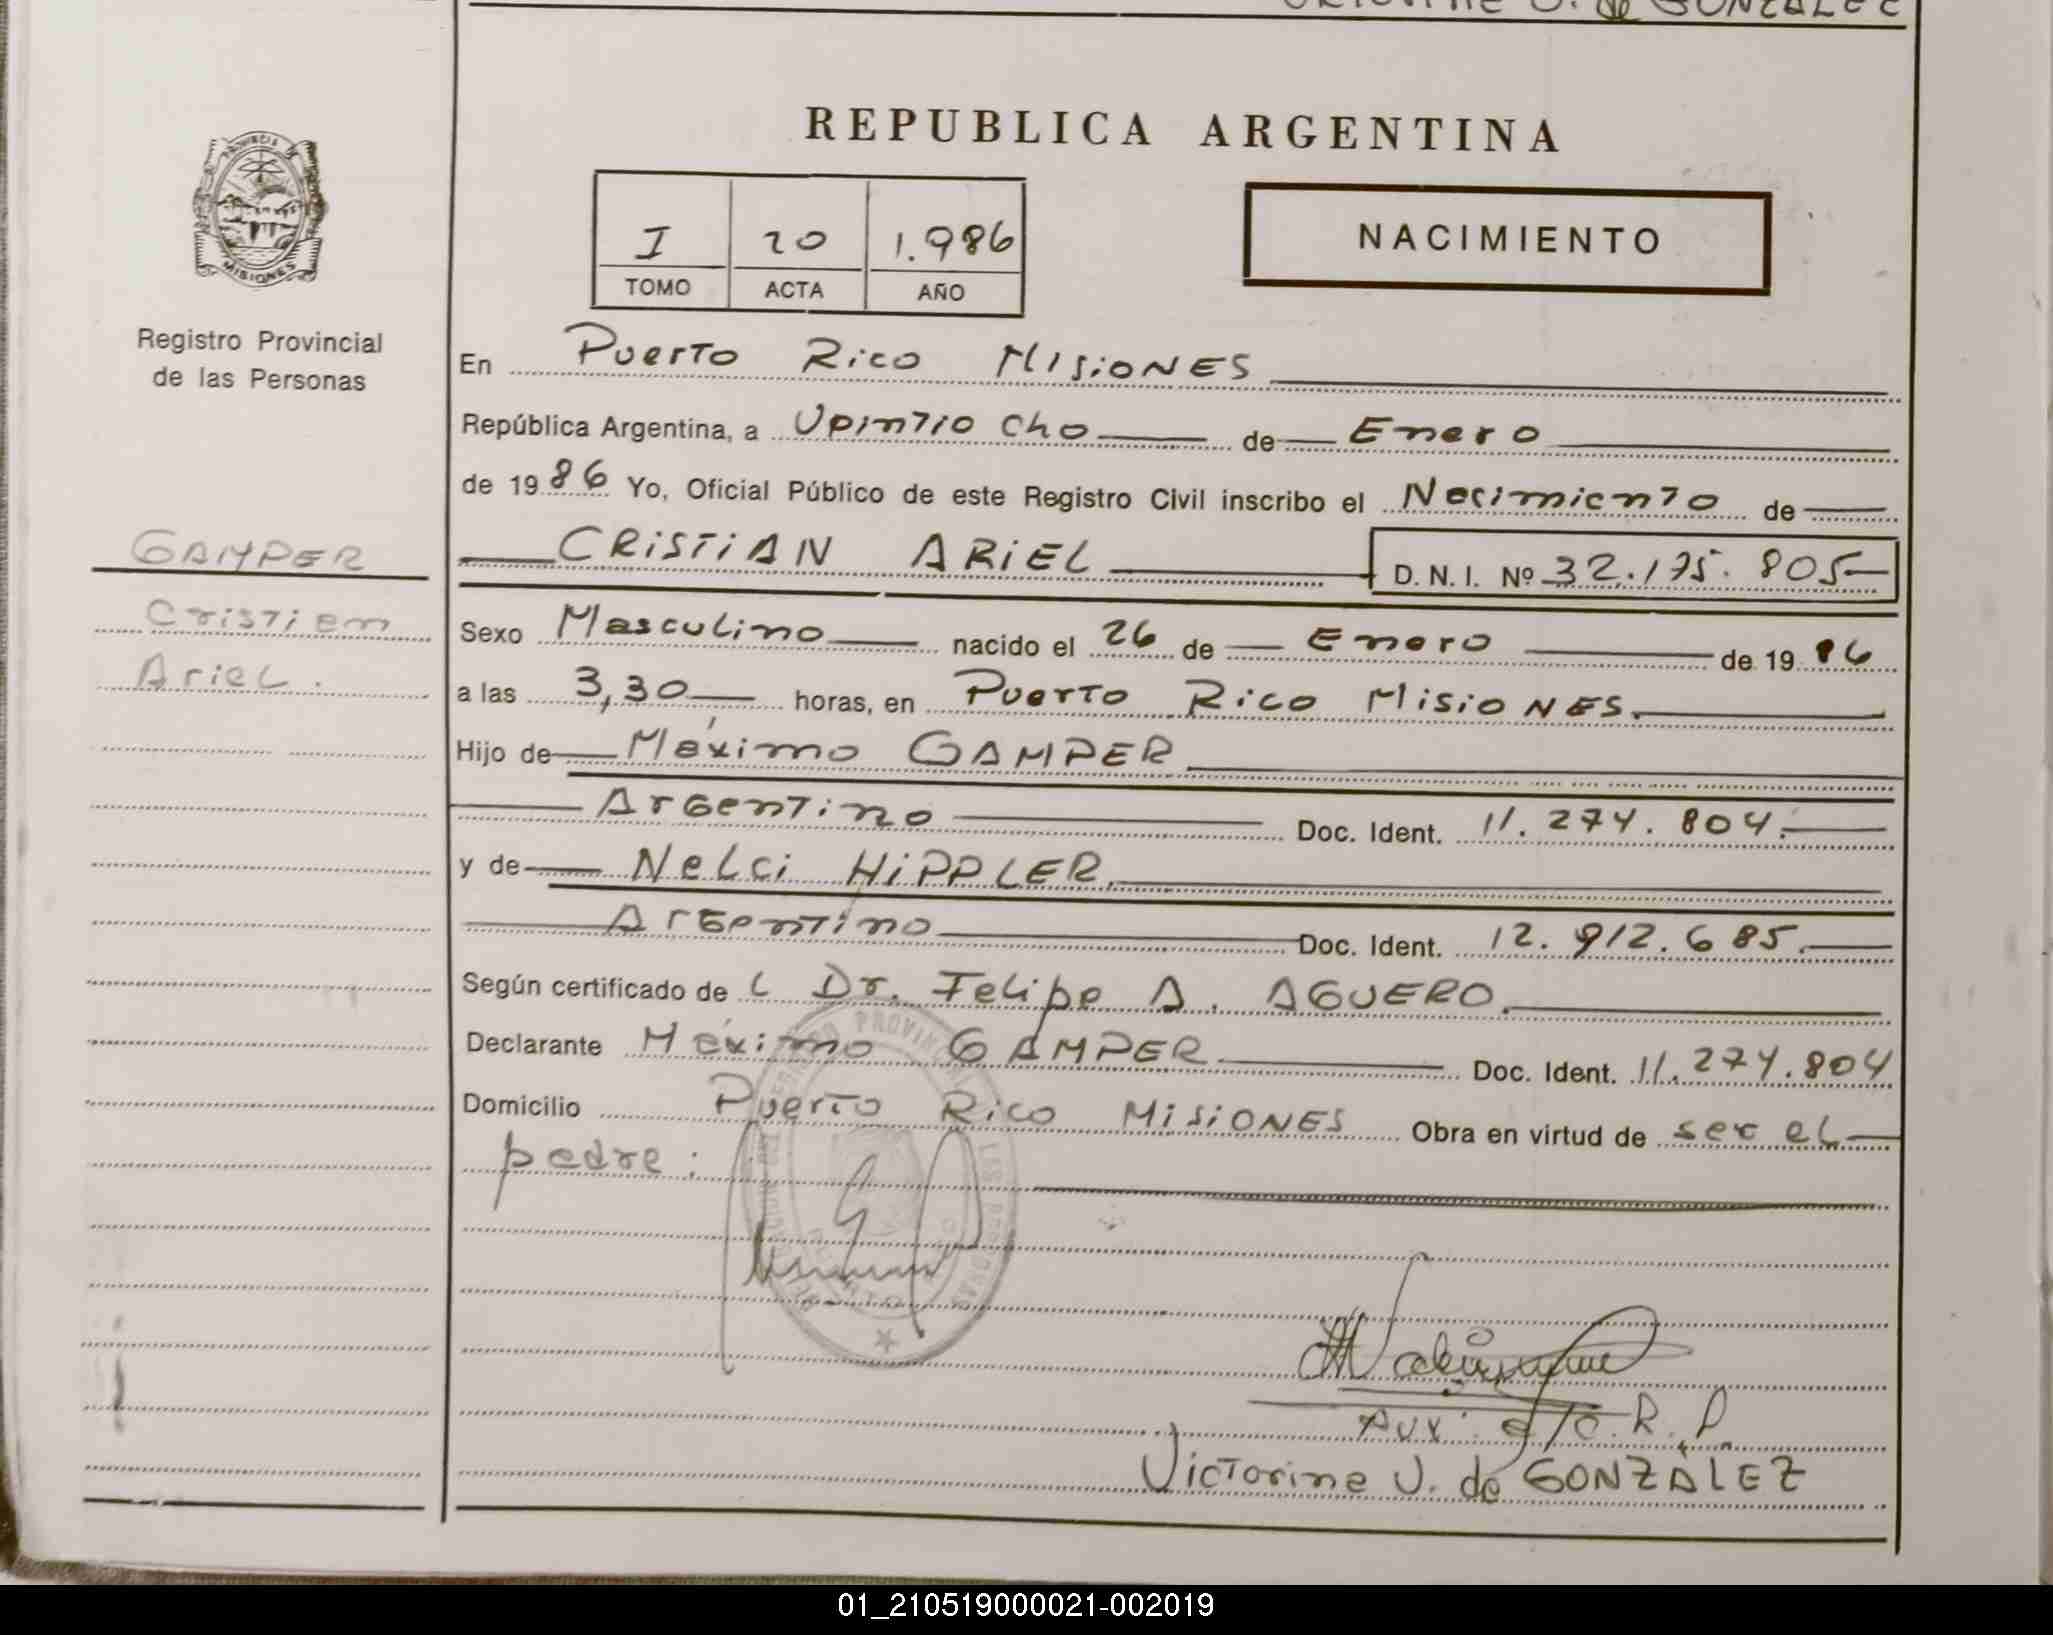 REPUBLICA ARGENTINA
PROVINCIA DE
MISIONES
Registro Provincial
de las Personas
GAMPER
Cristian
Ariel.
I 20 1.986
TOMO ACTA AÑO
NACIMIENTO
En Puerto Rico Misiones
República Argentina, a Veintiocho de Enero
de 1986 Yo, Oficial Público de este Registro Civil inscribo el Nacimiento de
CRISTIAN ARIEL D. N. I. Nº 32.175.805
Sexo Masculino nacido el 26 de Enero de 1986
a las 3,30 horas, en Puerto Rico Misiones.
Hijo de Máximo GAMPER
Argentino Doc. Ident. 11.274.804.
y de Nelci HIPPLER.
Argentino Doc. Ident. 12.912.685.
Según certificado de L Dr. Felipe A. AGUERO.
Declarante Máximo GAMPER Doc. Ident. 11.274.804
Domicilio Puerto Rico Misiones Obra en virtud de ser el
padre.
Aux. a/c. R. P.
Victorina V. de GONZALEZ
01_210519000021-002019